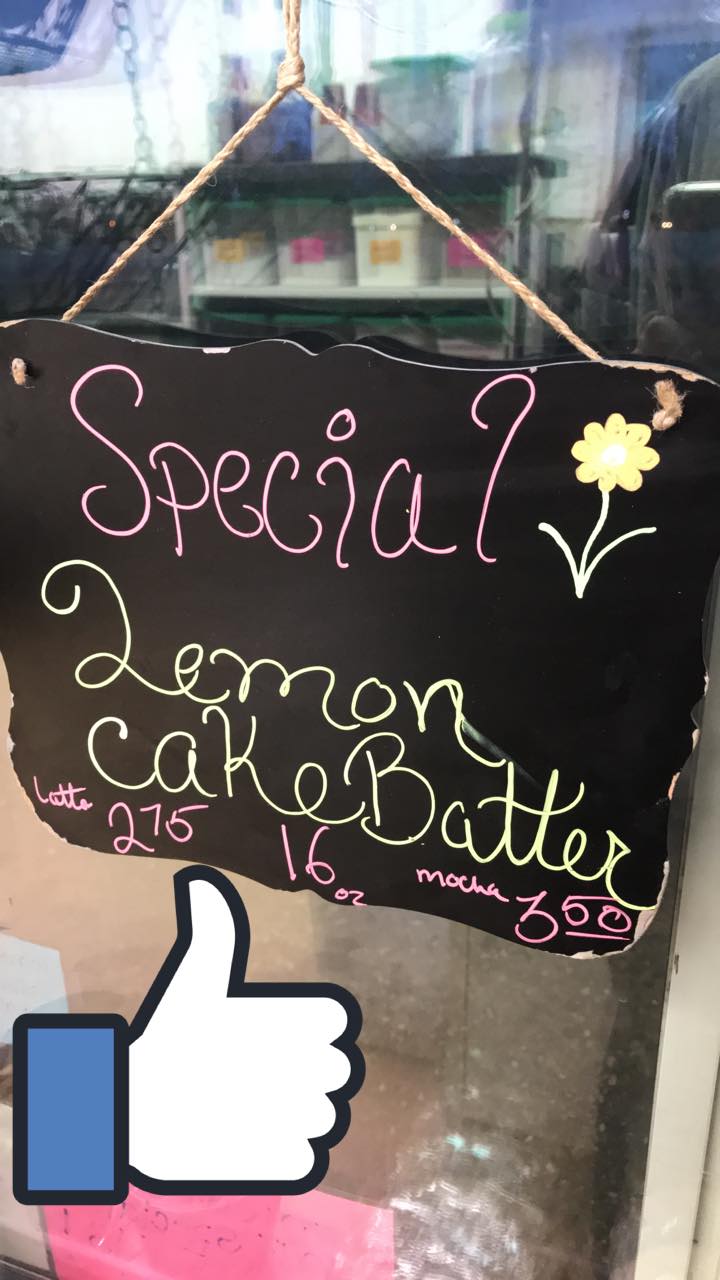 Special
Lemon
cake Batter
Latte 275
16 oz
mocha 3 50